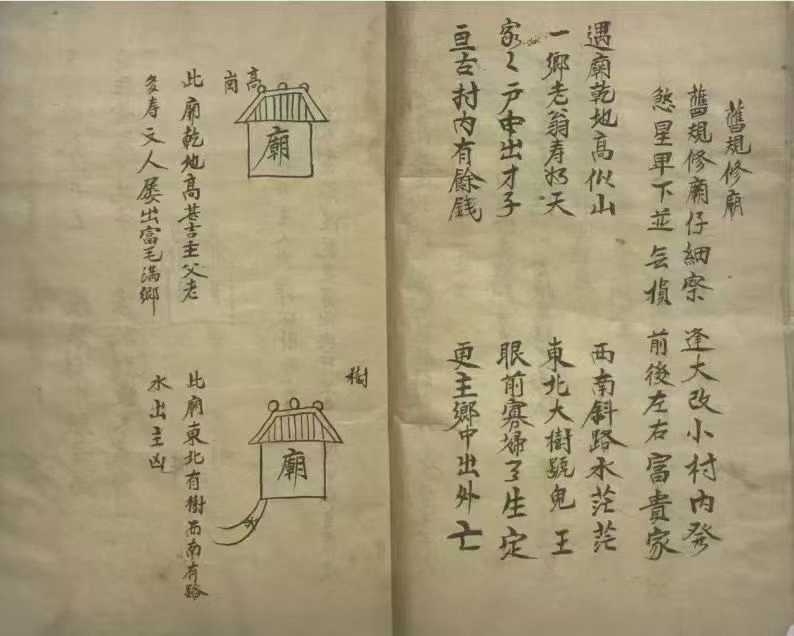 舊規修廟
舊規修廟仔細察
煞星早下並無損
逢大改小村內發
前後左右富貴家
遇廟乾地高似山
一鄉老翁寿如天
家々戶中出才子
亘古村內有餘錢
西南斜路水茫茫
東北大樹號鬼王
眼前寡婦了生定
更主鄉中出外亡
高崗
廟
此廟乾地高甚吉主父老
多寿文人屡出富宅滿鄉
樹
廟
此廟東北有樹西南有路
水出主凶